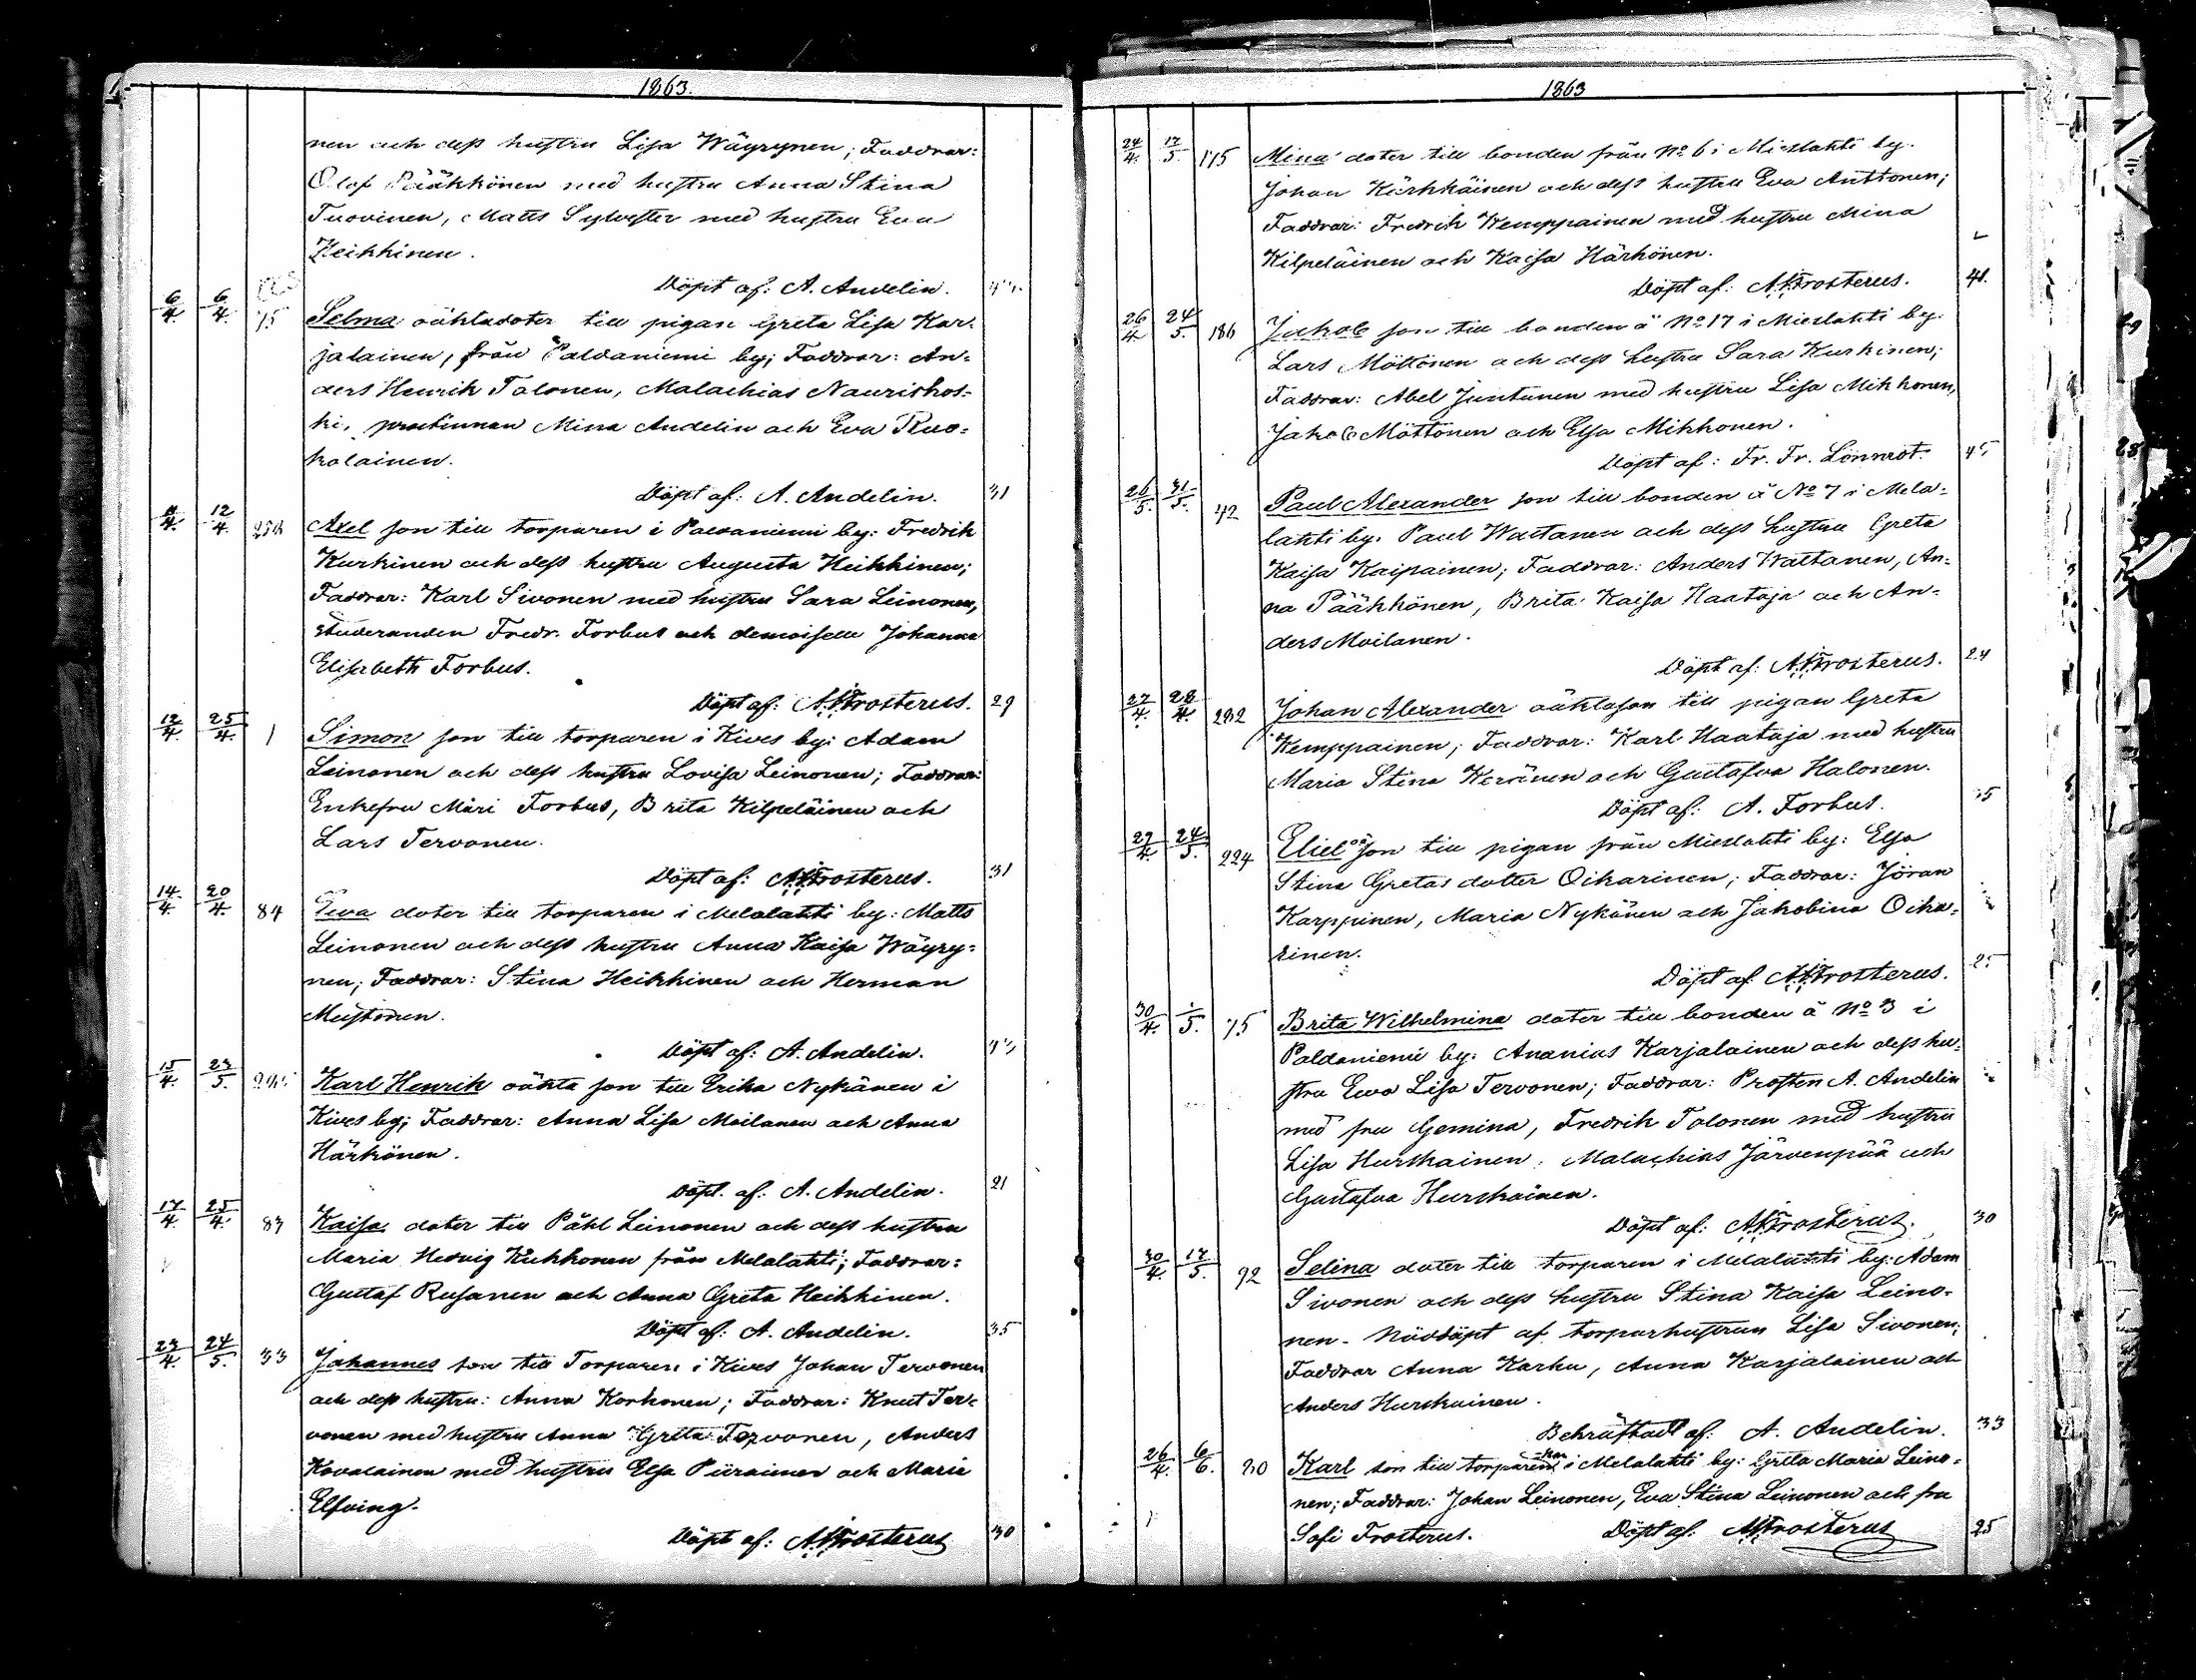 1863.
nen och dess hustru Lisa Wäyrynen; Faddrar:
Olof Pääkkönen med hustru Anna Stina
Tuovinen, Matts Sylvester med hustru Eva
Heikkinen.
Döpt af: A. Andelin.
6/4. 6/4. 75 Selma oäktadoter till pigan Greta Lisa Kar-
jalainen, från Paldaniemi by; Faddrar: An-
ders Henrik Tolonen, Malachias Naurishos-
ki, prostinnan Mina Andelin och Eva Ruo-
kolainen.
Döpt af: A. Andelin. 31
12/4. Axel son till torparen i Paldaniemi by: Fredrik
Kurkinen och dess hustru Augusta Heikkinen;
Faddrar: Karl Sivonen med hustru Sara Leinonen,
Studeranden Fredr. Forbus och demoiselle Johanna
Elisabeth Forbus.
Döpt af: Frosterus. 29
12/4. 25/4. 1 Simon son till torparen i Kives by: Adam
Leinonen och dess hustru Lovisa Leinonen; Faddrar:
Enkefru Mari Forbus, Brita Kilpeläinen och
Lars Tervonen.
Döpt af: Frosterus. 31
14/4. 20/4. 84 Eva doter till torparen i Melalahti by: Matts
Leinonen och dess hustru Anna Kaisa Wäyry-
nen; Faddrar: Stina Heikkinen och Herman
Mustonen.
Döpt af: A. Andelin.
15/4. 23/5. Karl Henrik oäkta son till Erika Nykänen i
Kives by; Faddrar: Anna Lisa Moilanen och Anna
Härkönen.
Döpt. af: A. Andelin. 21
17/4. 25/4. 83 Kaisa doter till Påhl Leinonen och dess hustru
Maria Hedvig Kukkonen från Melalahti; Faddrar:
Gustaf Rusanen och Anna Greta Heikkinen.
Döpt af: A. Andelin. 35
23/4. 24/5. 33 Johannes son till Torparen i Kives Johan Tervonen
och dess hustru: Anna Korhonen; Faddrar: Knut Ter-
vonen med hustru Anna Greta Tervonen, Anders
Kovalainen med hustru Elsa Piirainen och Maria
Elfving.
Döpt af: Frosterus 30
1863
24/4. 17/5. 175 Mina doter till bonden från No 6 i Mieslahti by.
Johan Kärkkäinen och dess hustru Eva Anttonen;
Faddrar: Fredrik Kemppainen med hustru Mina
Kilpeläinen och Kaisa Härkönen.
Döpt af: Frosterus. 41.
26/4. 24/5. 186 Jakob son till bonden å No 17 i Mieslahti by.
Lars Möttönen och dess hustru Sara Kurkinen;
Faddrar: Abel Juntunen med hustru Lisa Mikkonen,
Jakob Möttönen och Elsa Mikkonen.
Döpt af: Fr. Fr. Lönnrot. 45
26/5. 31/5. 42 Paul Alexander son till bonden å No 7 i Mela-
lahti by. Paul Wattanen och dess hustru Greta
Kaisa Kaipainen; Faddrar: Anders Wattanen, An-
na Pääkkönen, Brita Kaisa Haataja och An-
ders Moilanen.
Döpt af: Frosterus. 24
27/4. 28/4. 232 Johan Alexander oäktason till pigan Greta
Kemppainen; Faddrar: Karl Haataja med hustru
Maria Stina Keränen och Gustafva Halonen.
Döpt af: A. Forbus.
27/4. 24/5. 224 Eliel oä son till pigan från Mieslahti by: Elsa
Stina Gretas dotter Oikarinen; Faddrar: Jöran
Karppinen, Maria Nykänen och Jakobina Oika-
rinen.
Döpt af: Frosterus.
30/4. 75 Brita Wilhelmina doter till bonden å No 3 i
Paldaniemi by: Ananias Karjalainen och dess hu-
stru Ewa Lisa Tervonen; Faddrar: Prosten A. Andelin
med fru Gemina, Fredrik Tolonen med hustru
Lisa Hurskainen, Malachias Järvenpää och
Gustafva Hurskainen.
Döpt af: Frosterus. 30
30/4. 17/5. 92 Selina doter till torparen i Melalahti by: Adam
Sivonen och dess hustru Stina Kaisa Leino-
nen. Nöddöpt af torparhustrun Lisa Sivonen;
Faddrar Anna Karhu, Anna Karjalainen och
Anders Hurskainen.
Bekräftad af: A. Andelin. 33
26/4. 6/6. Karl son till torparen i Melalahti by: Greta Maria Leino-
nen; Faddrar: Johan Leinonen, Eva Stina Leinonen och fru
Sofi Frosterus. Döpt af: Frosterus 25